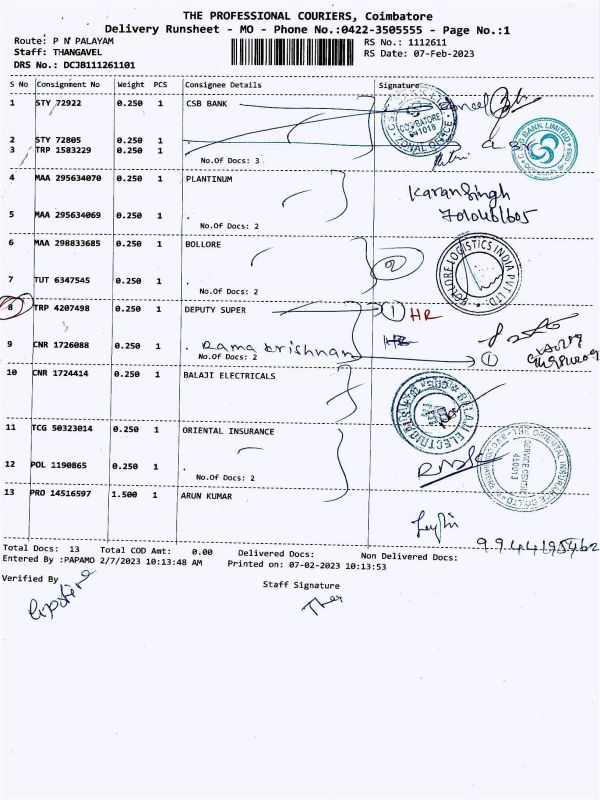 THE PROFESSIONAL COURIERS, Coimbatore
Delivery Runsheet - MO - Phone No.:0422-3505555 - Page No.:1
Route: P N PALAYAM
Staff: THANGAVEL
DRS No.: DCJB111261101
RS No.: 1112611
RS Date: 07-Feb-2023
S No Consignment No Weight PCS Consignee Details Signature
1 STY 72922 0.250 1 CSB BANK
2 STY 72805 0.250 1
3 TRP 1583229 0.250 1 .
No.Of Docs: 3
4 MAA 295634070 0.250 1 PLANTINUM
Karansingh
5 MAA 295634069 0.250 1 .
No.Of Docs: 2
6 MAA 298833685 0.250 1 BOLLORE
2
7 TUT 6347545 0.250 1 .
No.Of Docs: 2
BOLLORE LOGISTICS INDIA PVT LTD
8 TRP 4207498 0.250 1 DEPUTY SUPER 1 HR
9 CNR 1726088 0.250 1 . Rama krishnan
No.Of Docs: 2 1
10 CNR 1724414 0.250 1 BALAJI ELECTRICALS
11 TCG 50323014 0.250 1 ORIENTAL INSURANCE
12 POL 1190865 0.250 1 .
No.Of Docs: 2
13 PRO 14516597 1.500 1 ARUN KUMAR
Total Docs: 13 Total COD Amt: 0.00 Delivered Docs: Non Delivered Docs:
Entered By :PAPAMO 2/7/2023 10:13:48 AM Printed on: 07-02-2023 10:13:53
Verified By
Staff Signature